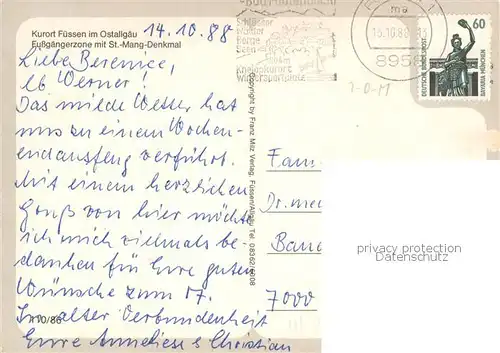 Kurort Füssen im Ostallgäu
Fußgängerzone mit St.-Mang-Denkmal
14.10.88
Liebe Berenice,
lb Werner!
Das milde Wetter hat
uns zu einem Wochen-
endausflug verführt.
Mit einem herzlichen
Gruß von hier möchte
ich mich vielmals be-
danken für Eure guten
Wünsche zum 17.
In alter Verbundenheit
Eure Anneliese & Christian
A10/86
Copyright by Franz Milz Verlag, Füssen/Allgäu Tel. 08362/6208
Schlösser
Wälder
Berge
Kneippkurort
Wintersportplatz
15.10.88-13
8958
60
DEUTSCHE BUNDESPOST
BAVARIA MÜNCHEN
Fam
Dr. med
7000
privacy protection
Datenschutz